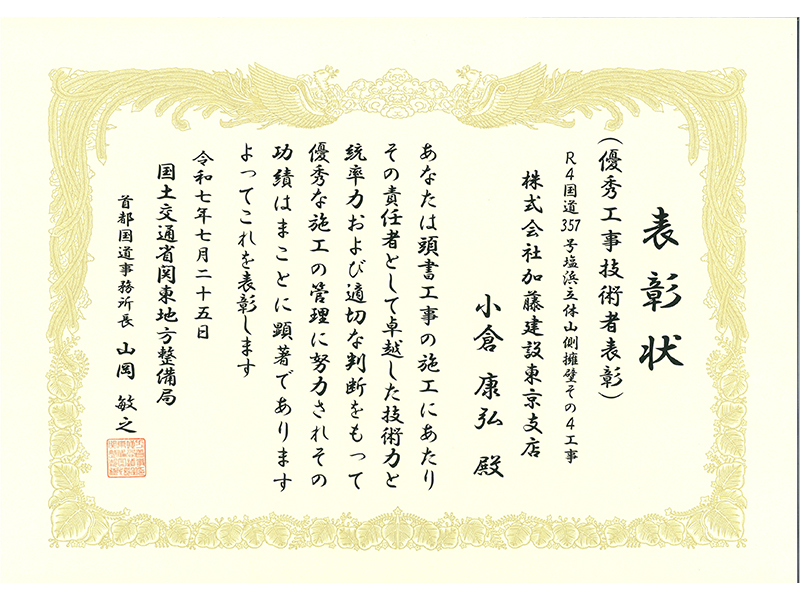 表彰状
（優秀工事技術者表彰）
R4国道357号塩浜立体山側擁壁その4工事
株式会社加藤建設東京支店
小倉 康弘 殿
あなたは頭書工事の施工にあたり
その責任者として卓越した技術力と
統率力および適切な判断をもって
優秀な施工の管理に努力されその
功績はまことに顕著であります
よってこれを表彰します
令和七年七月二十五日
国土交通省関東地方整備局
首都国道事務所長 山岡 敏之